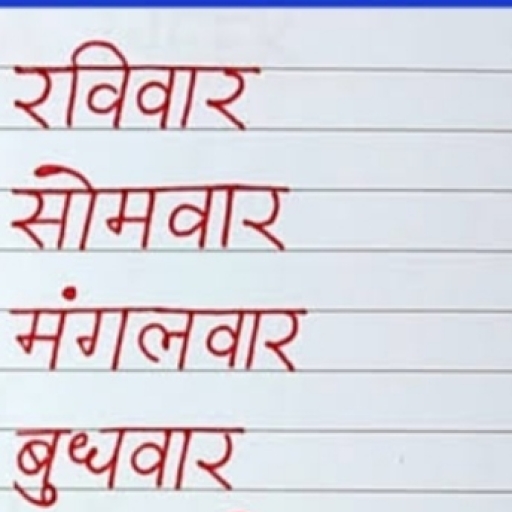 रविवार
सोमवार
मंगलवार
बुधवार